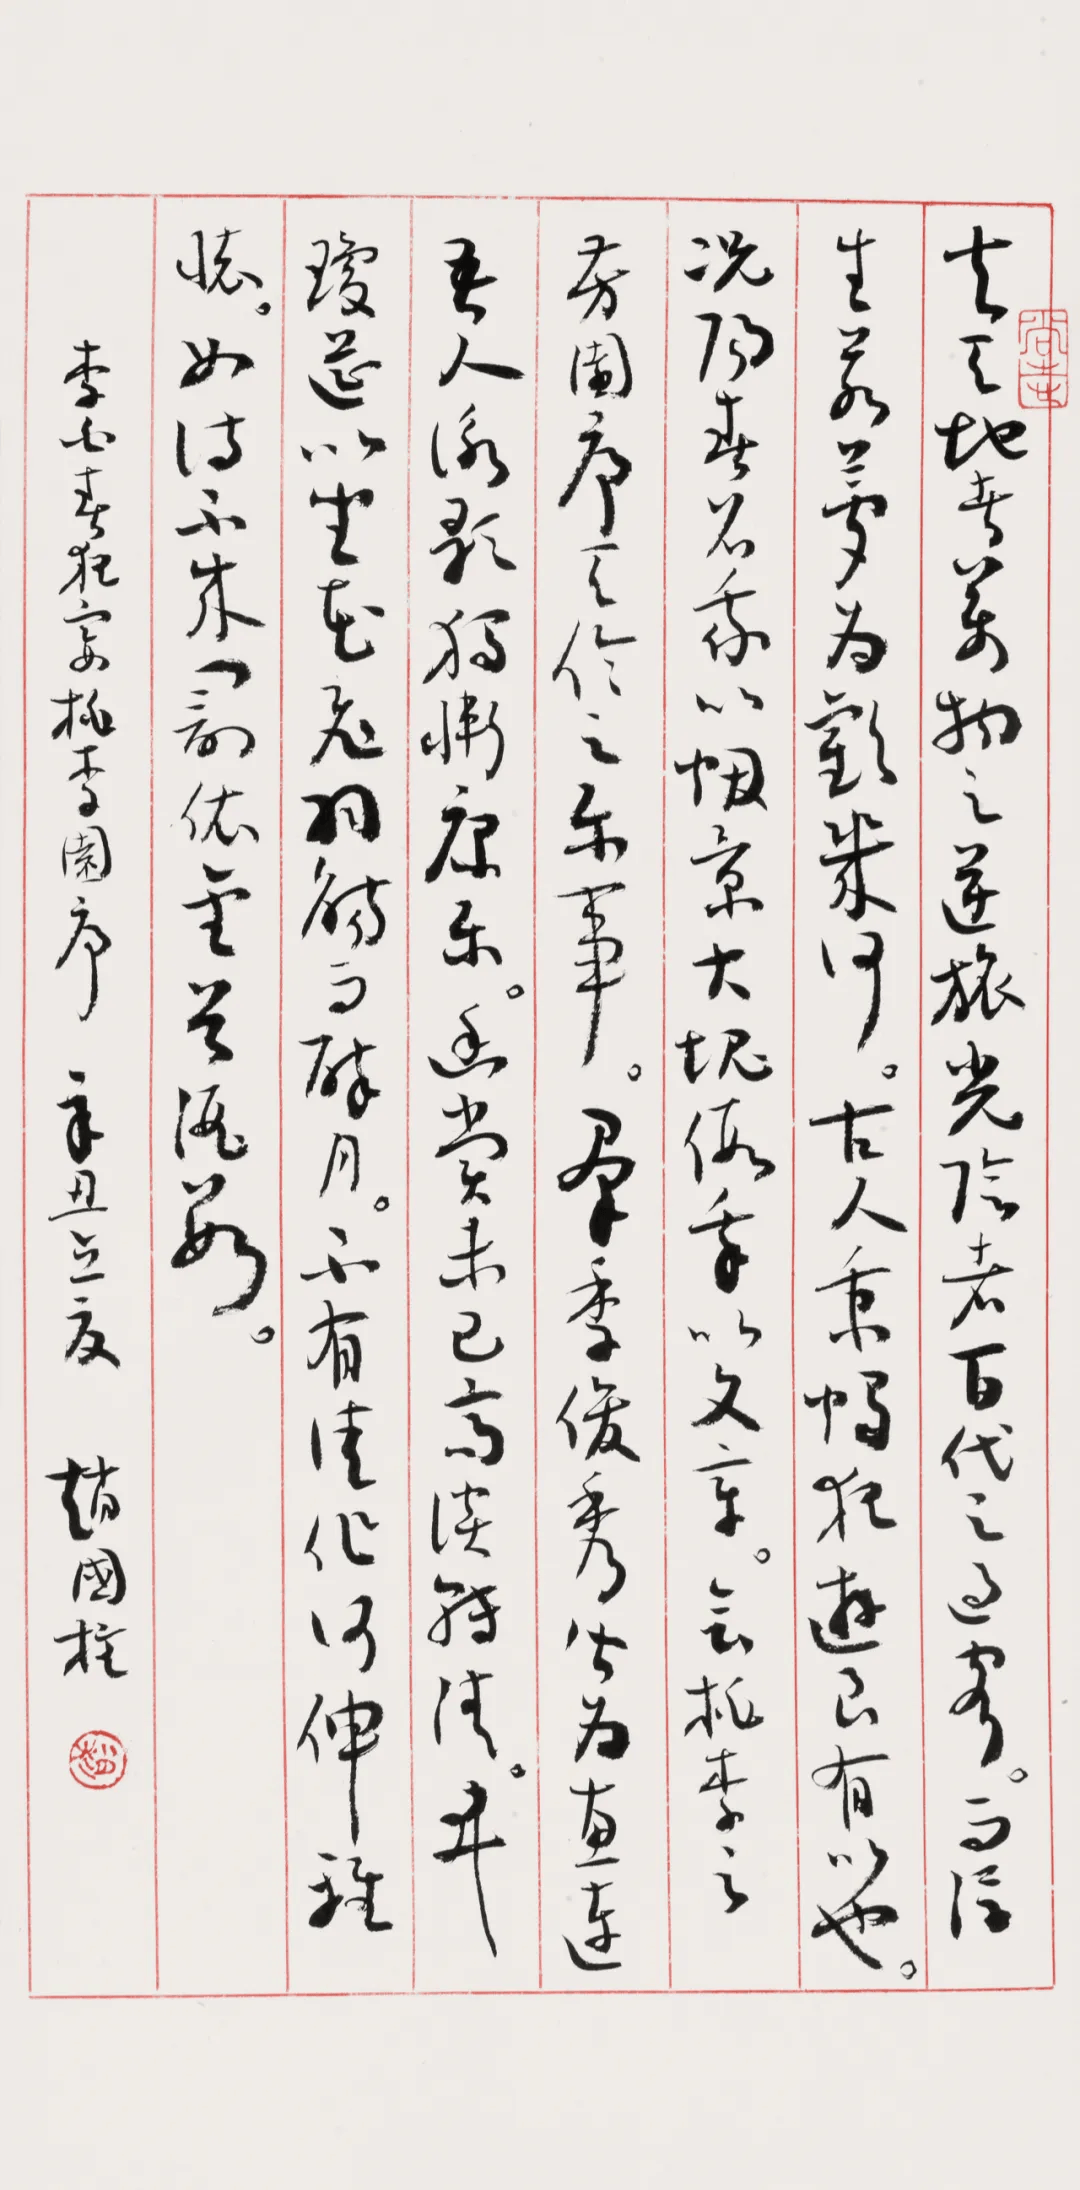 夫天地者萬物之逆旅光陰者百代之過客。而浮
生若夢為歡幾何。古人秉燭夜遊良有以也。
況陽春召我以烟景大塊假我以文章。會桃李之
芳園序天倫之樂事。羣季俊秀皆為惠連
吾人詠歌獨慚康樂。幽賞未已高談轉清。開
瓊筵以坐花飛羽觴而醉月。不有佳作何伸雅
懷。如詩不成罰依金谷酒數。
李白春夜宴桃李園序 辛丑立夏 趙國柱